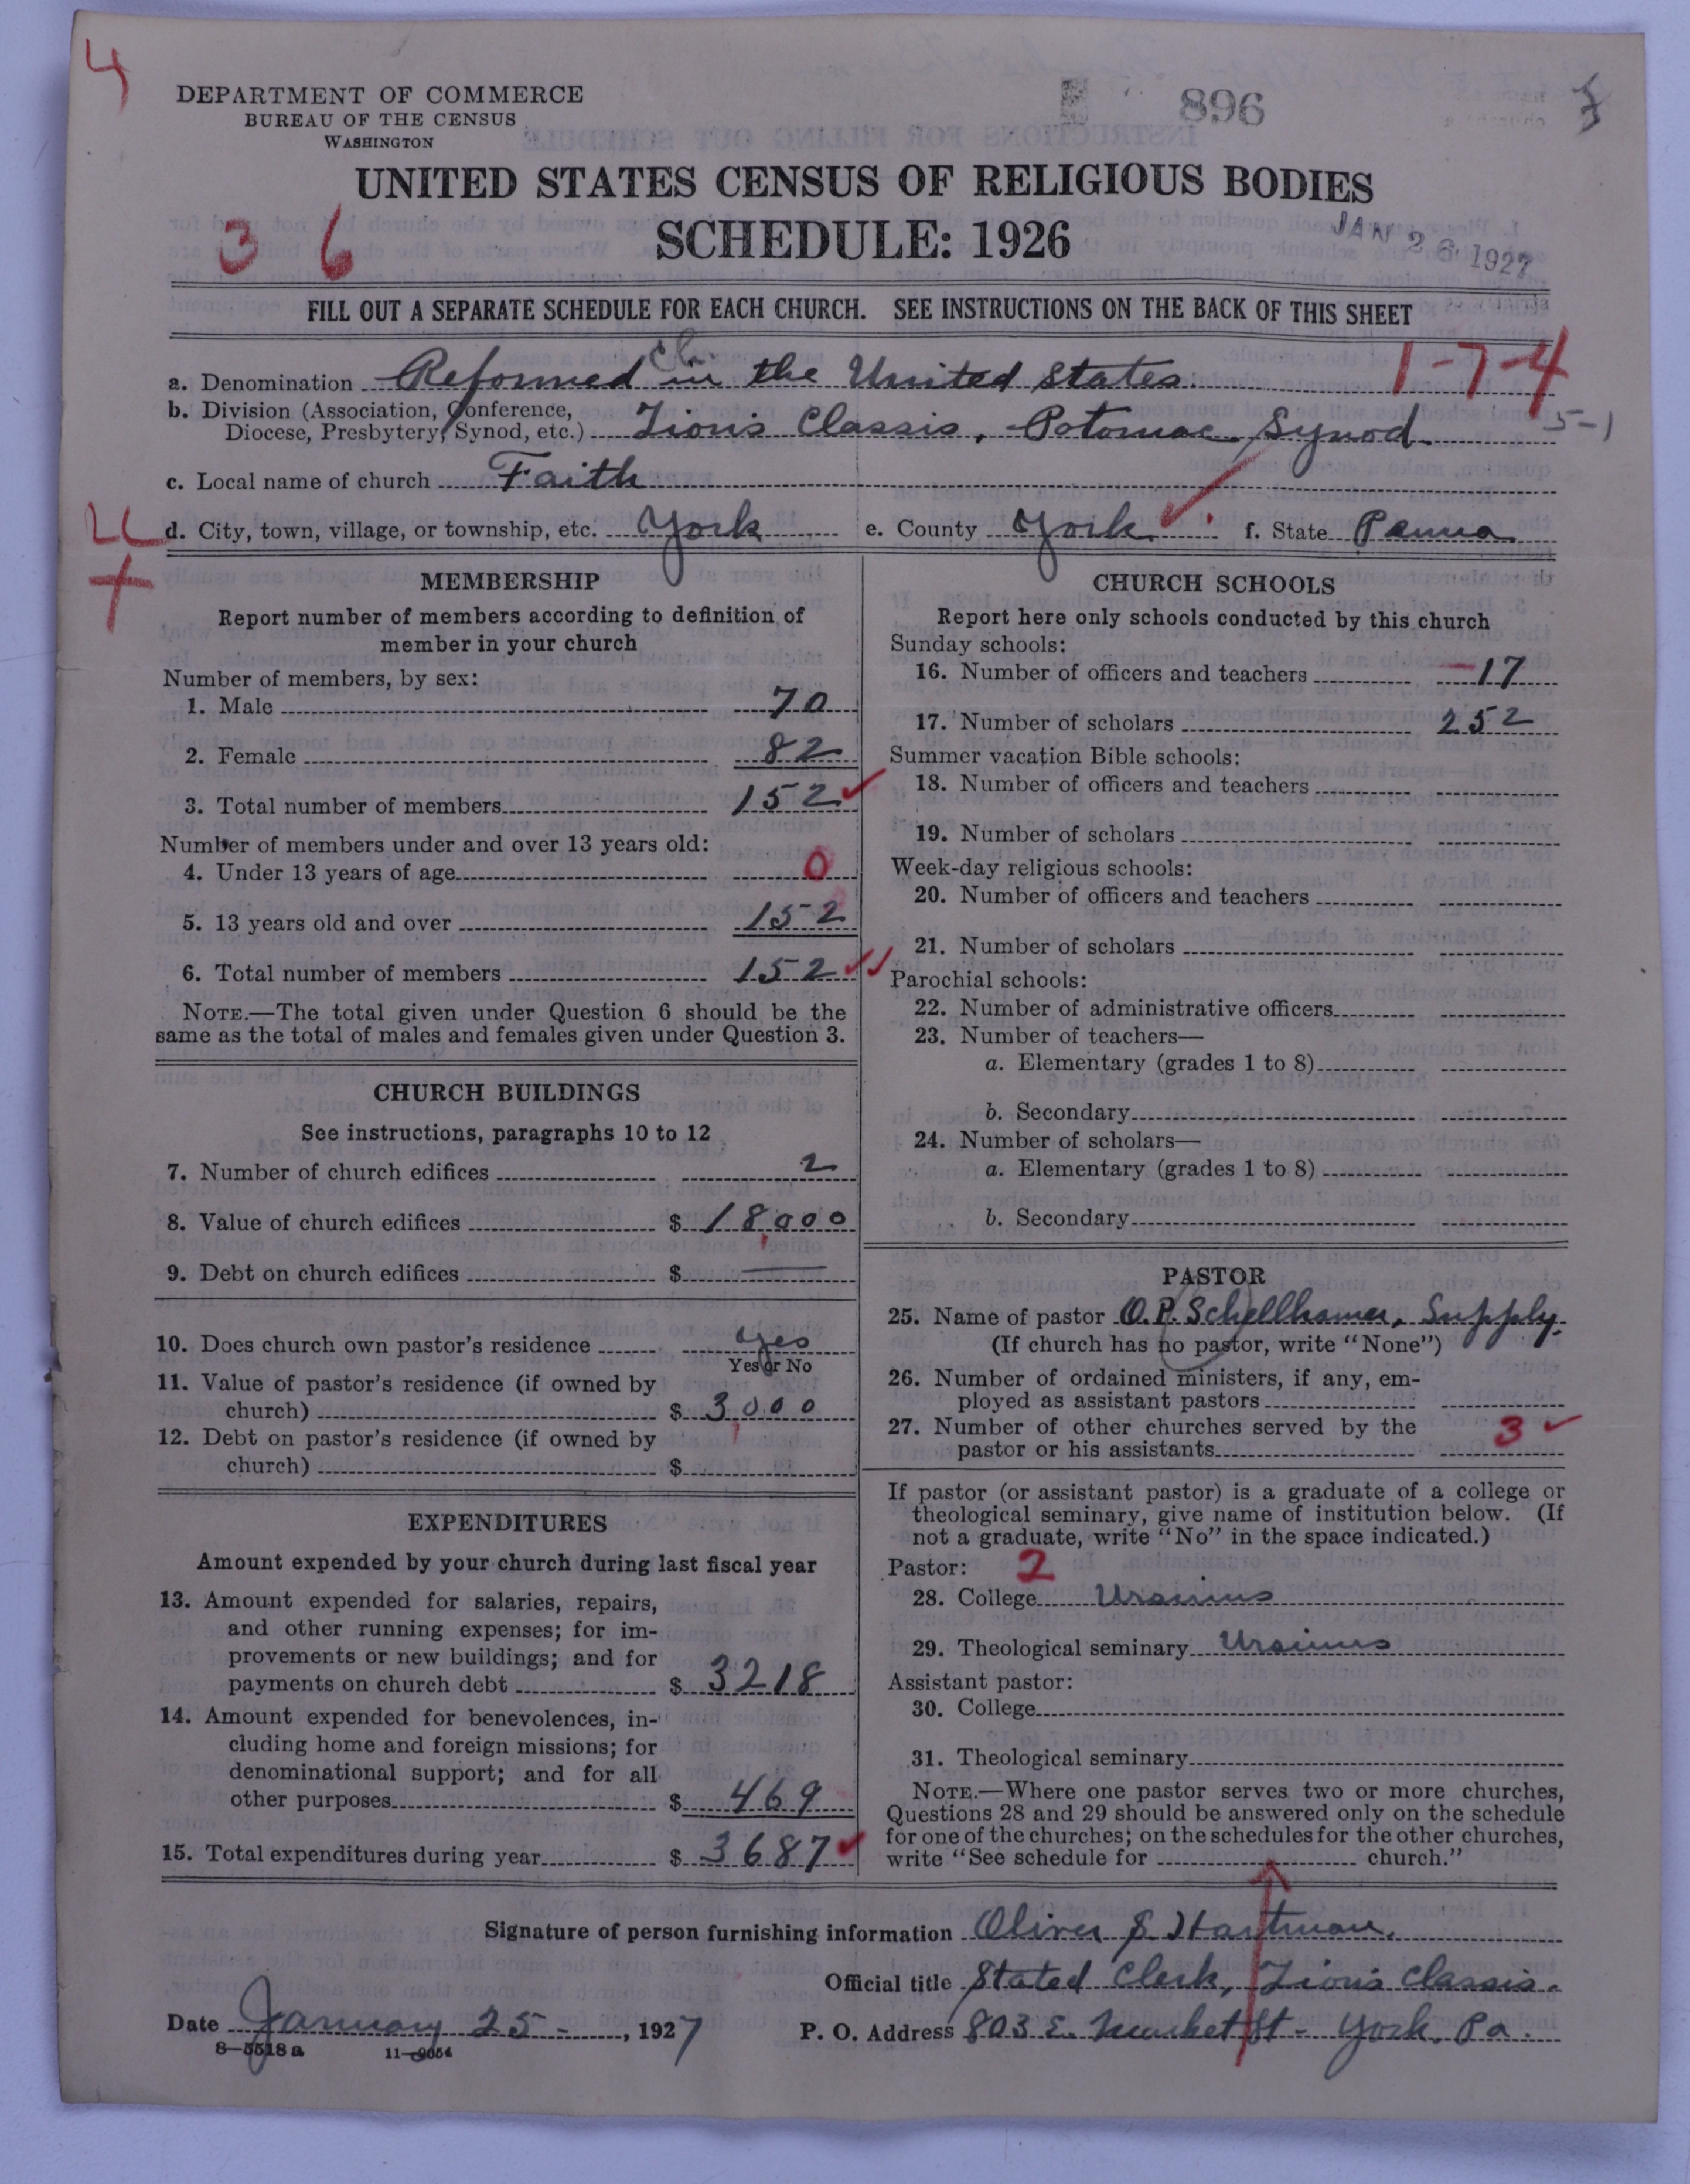 4
DEPARTMENT OF COMMERCE
BUREAU OF THE CENSUS
WASHINGTON
896
UNITED STATES CENSUS OF RELIGIOUS BODIES
SCHEDULE: 1926
JAN 26 1927
3 6
FILL OUT A SEPARATE SCHEDULE FOR EACH CHURCH. SEE INSTRUCTIONS ON THE BACK OF THIS SHEET
1-7-4
a. Denomination Reformed Ch. in the United States
b. Division (Association, Conference,
Diocese, Presbytery, Synod, etc.) Zion's Classis, Potomac Synod.
5-1
c. Local name of church Faith
d. City, town, village, or township, etc. York e. County York f. State Penna.
MEMBERSHIP
Report number of members according to definition of
member in your church
Number of members, by sex:
1. Male 70
2. Female 82
3. Total number of members 152
Number of members under and over 13 years old:
4. Under 13 years of age 0
5. 13 years old and over 152
6. Total number of members 152
NOTE.—The total given under Question 6 should be the
same as the total of males and females given under Question 3.
CHURCH BUILDINGS
See instructions, paragraphs 10 to 12
7. Number of church edifices 2
8. Value of church edifices $ 18,000
9. Debt on church edifices $ —
10. Does church own pastor's residence yes
Yes or No
11. Value of pastor's residence (if owned by
church) $ 3,000
12. Debt on pastor's residence (if owned by
church) $
EXPENDITURES
Amount expended by your church during last fiscal year
13. Amount expended for salaries, repairs,
and other running expenses; for im-
provements or new buildings; and for
payments on church debt $ 3218
14. Amount expended for benevolences, in-
cluding home and foreign missions; for
denominational support; and for all
other purposes $ 469
15. Total expenditures during year $ 3687
CHURCH SCHOOLS
Report here only schools conducted by this church
Sunday schools:
16. Number of officers and teachers 17
17. Number of scholars 252
Summer vacation Bible schools:
18. Number of officers and teachers
19. Number of scholars
Week-day religious schools:
20. Number of officers and teachers
21. Number of scholars
Parochial schools:
22. Number of administrative officers
23. Number of teachers—
a. Elementary (grades 1 to 8)
b. Secondary
24. Number of scholars—
a. Elementary (grades 1 to 8)
b. Secondary
PASTOR
25. Name of pastor O.P. Schellhamer, Supply.
(If church has no pastor, write "None")
26. Number of ordained ministers, if any, em-
ployed as assistant pastors
27. Number of other churches served by the
pastor or his assistants 3
If pastor (or assistant pastor) is a graduate of a college or
theological seminary, give name of institution below. (If
not a graduate, write "No" in the space indicated.)
Pastor: 2
28. College Ursinus
29. Theological seminary Ursinus
Assistant pastor:
30. College
31. Theological seminary
NOTE.—Where one pastor serves two or more churches,
Questions 28 and 29 should be answered only on the schedule
for one of the churches; on the schedules for the other churches,
write "See schedule for church."
Signature of person furnishing information Oliver S. Hartman.
Official title Stated Clerk, Zion's Classis.
Date January 25-, 1927 P. O. Address 803 E. Market St- York, Pa.
8-5518a 11-9054